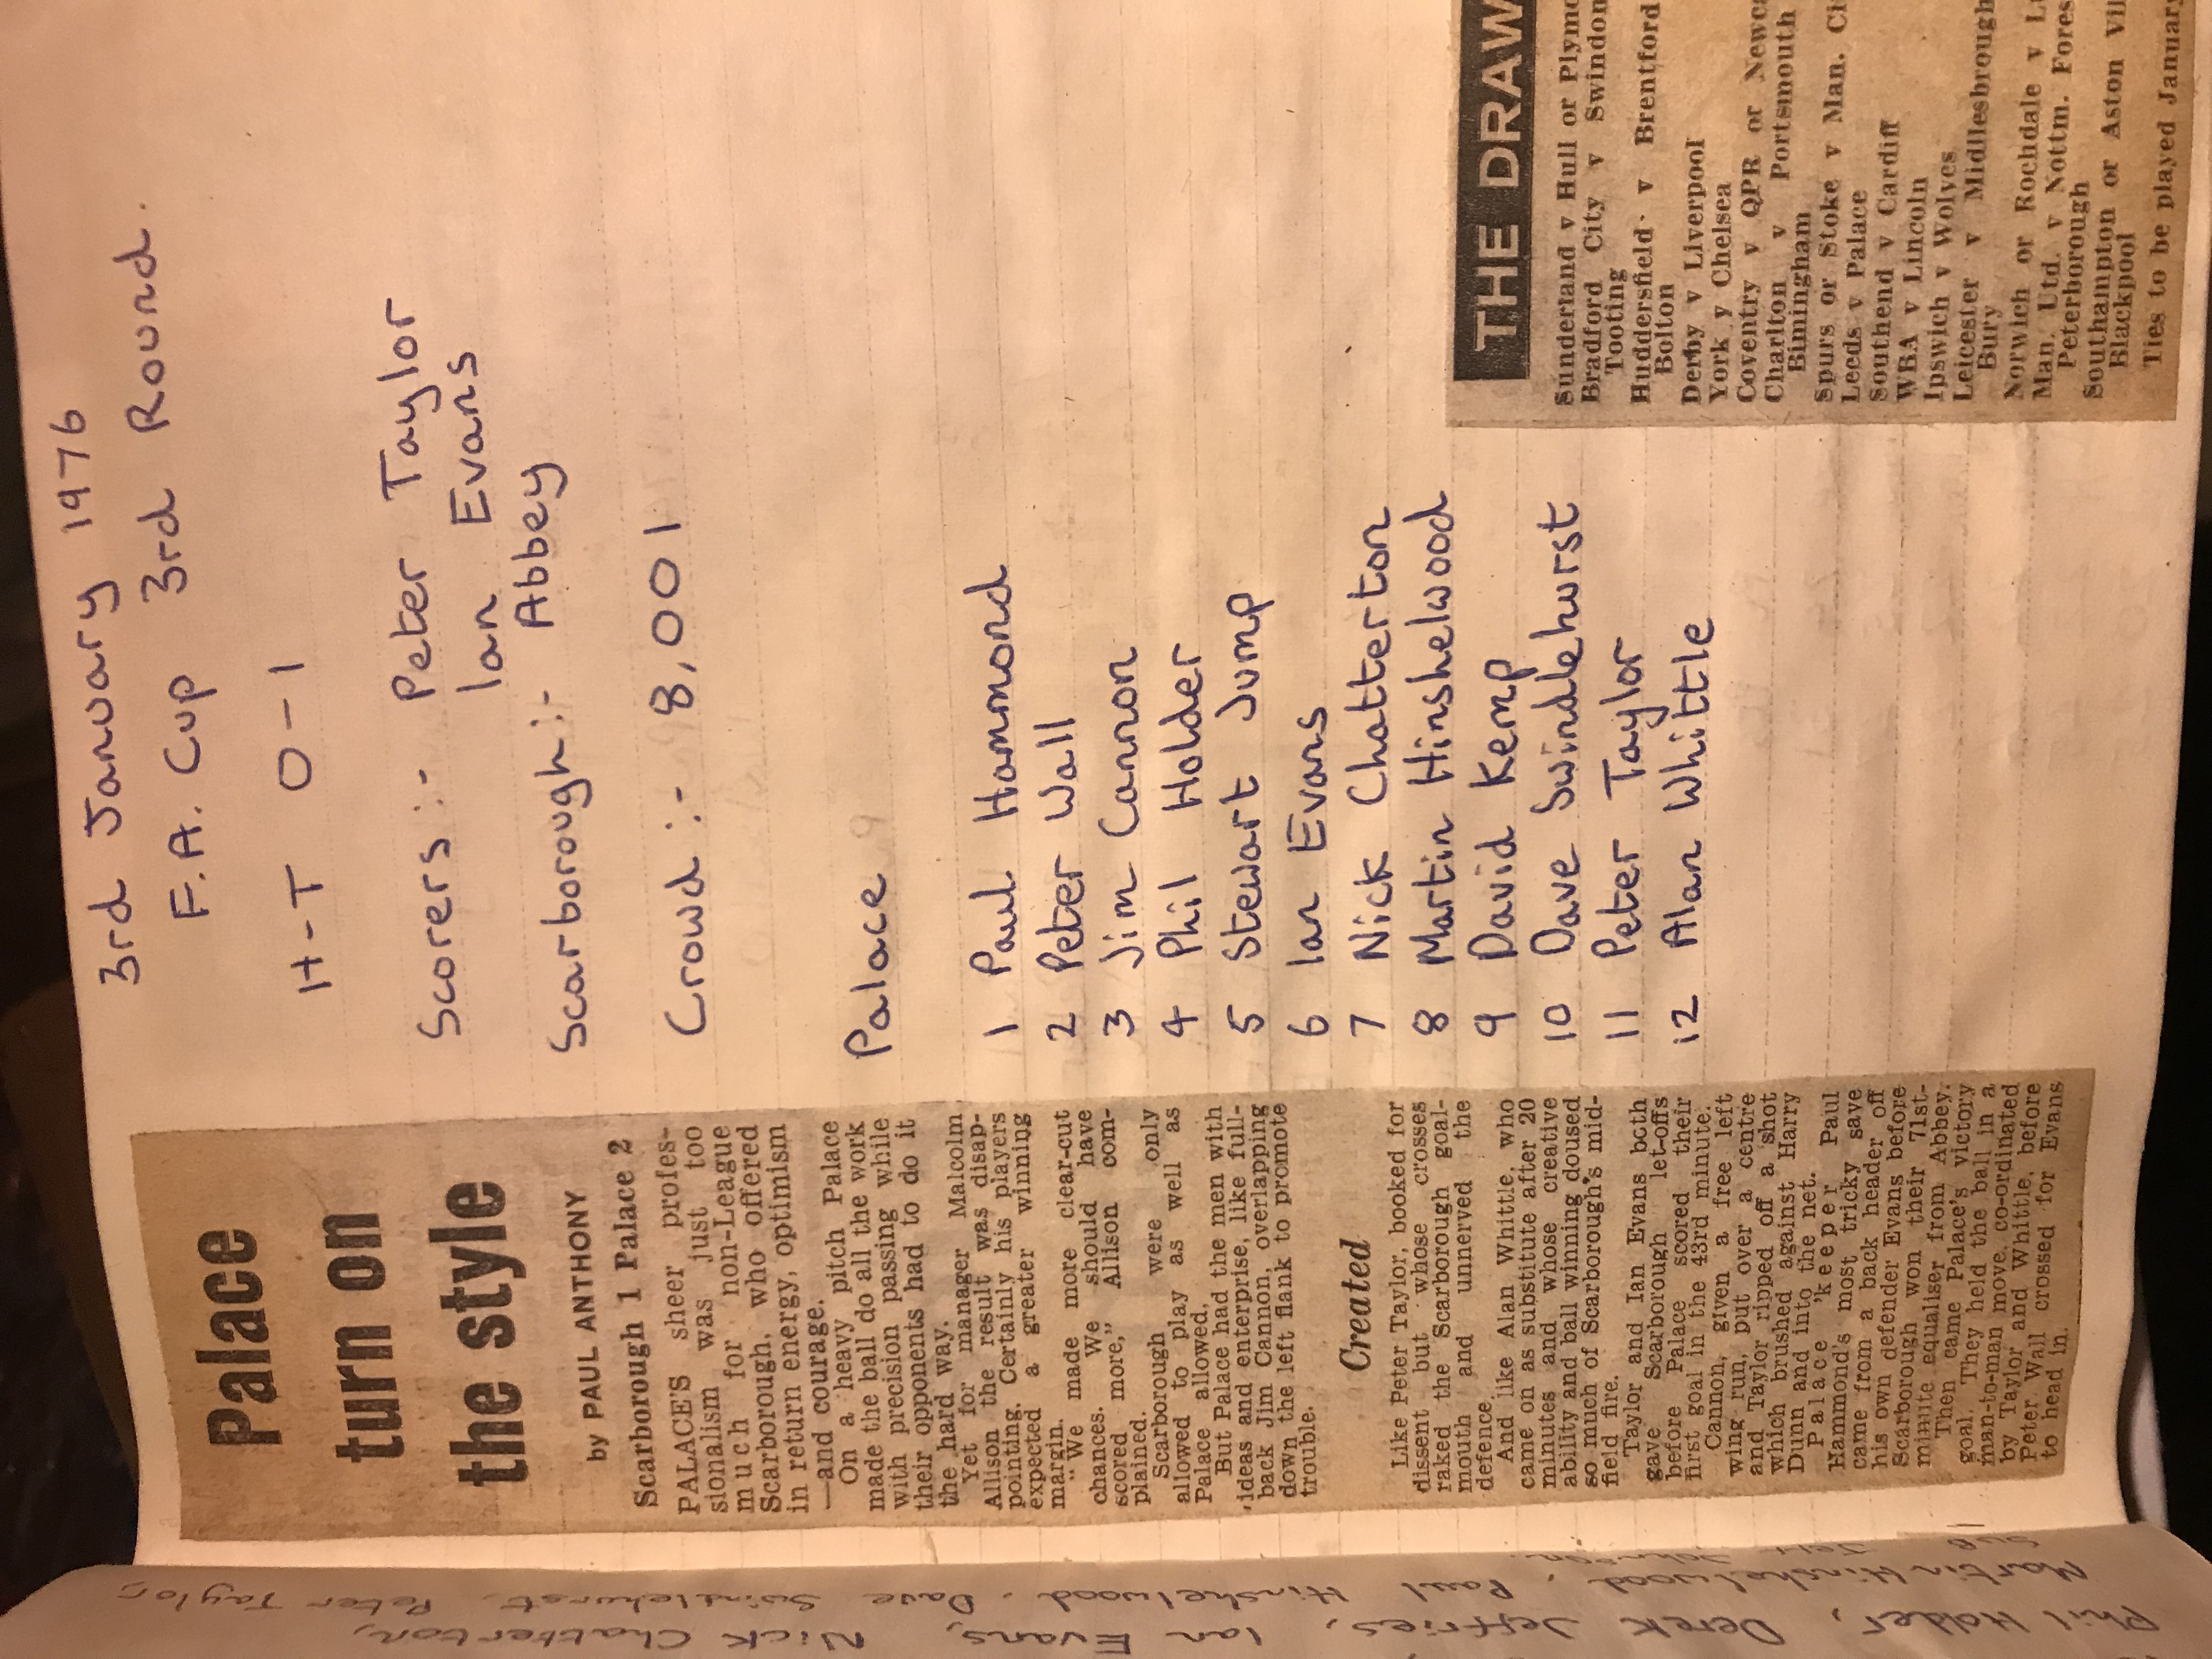 3rd January 1976
F.A. Cup 3rd Round.
H-T 0-1
Scorers :- Peter Taylor
Ian Evans
Scarborough :- Abbey
Crowd :- 8,001
Palace
1 Paul Hammond
2 Peter Wall
3 Jim Cannon
4 Phil Holder
5 Stewart Jump
6 Ian Evans
7 Nick Chatterton
8 Martin Hinshelwood
9 David Kemp
10 Dave Swindlehurst
11 Peter Taylor
12 Alan Whittle
Palace
turn on
the style
by PAUL ANTHONY
Scarborough 1 Palace 2
PALACE'S sheer profes-
sionalism was just too
much for non-League
Scarborough, who offered
in return energy, optimism
—and courage.
On a heavy pitch Palace
made the ball do all the work
with precision passing while
their opponents had to do it
the hard way.
Yet for manager Malcolm
Allison the result was disap-
pointing. Certainly his players
expected a greater winning
margin.
"We made more clear-cut
chances. We should have
scored more," Allison com-
plained.
Scarborough were only
allowed to play as well as
Palace allowed.
But Palace had the men with
ideas and enterprise, like full-
back Jim Cannon, overlapping
down the left flank to promote
trouble.
Created
Like Peter Taylor, booked for
dissent but whose crosses
raked the Scarborough goal-
mouth and unnerved the
defence.
And like Alan Whittle, who
came on as substitute after 20
minutes and whose creative
ability and ball winning doused
so much of Scarborough's mid-
field fire.
Taylor and Ian Evans both
gave Scarborough let-offs
before Palace scored their
first goal in the 43rd minute.
Cannon, given a free left
wing run, put over a centre
and Taylor ripped off a shot
which brushed against Harry
Dunn and into the net.
Palace 'keeper Paul
Hammond's most tricky save
came from a back header off
his own defender Evans before
Scarborough won their 71st-
minute equaliser from Abbey.
Then came Palace's victory
goal. They held the ball in a
man-to-man move, co-ordinated
by Taylor and Whittle, before
Peter Wall crossed for Evans
to head in.
THE DRAW
Sunderland v Hull or Plymo
Bradford City v Swindon
Tooting
Huddersfield v Brentford
Bolton
Derby v Liverpool
York v Chelsea
Coventry v QPR or Newca
Charlton v Portsmouth
Bimingham
Spurs or Stoke v Man. Ci
Leeds v Palace
Southend v Cardiff
WBA v Lincoln
Ipswich v Wolves
Leicester v Middlesbrough
Bury
Norwich or Rochdale v Lu
Man. Utd. v Nottm. Fores
Peterborough
Southampton or Aston Vil
Blackpool
Ties to be played January
Phil Holder, Derek Jeffries, Ian Evans, Nick Chatterton,
Martin Hinshelwood, Paul Hinshelwood, Dave Swindlehurst, Peter Taylor
Sub Jeff Johnson.